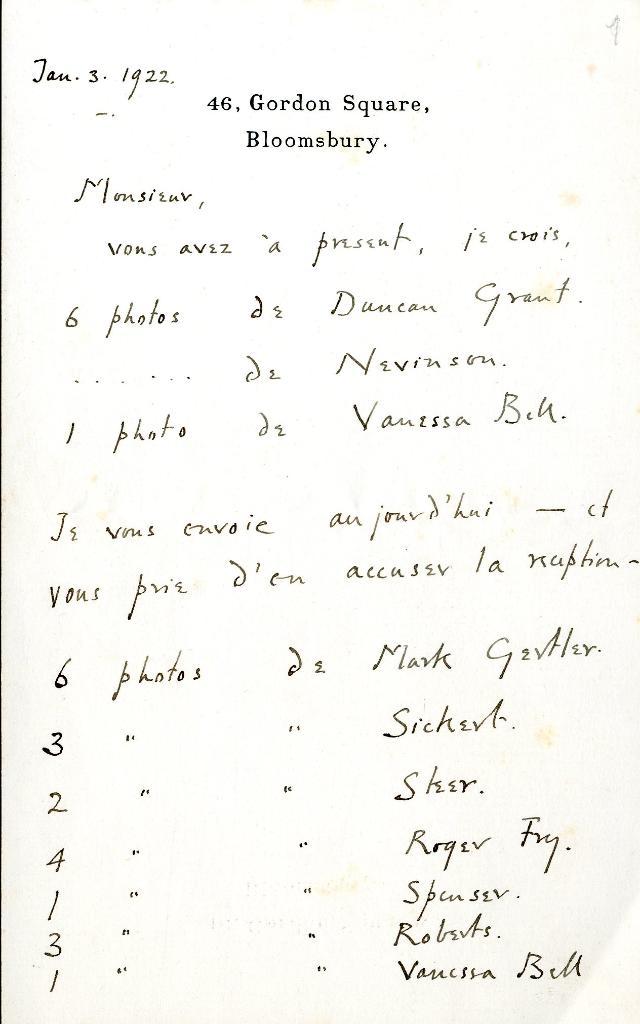 Jan. 3. 1922.
46, Gordon Square,
Bloomsbury.
Monsieur,
vous avez à present, je crois,
6 photos de Duncan Grant.
. . . . . . de Nevinson.
1 photo de Vanessa Bell.
Je vous envoie aujourd'hui — et
vous prie d'en accuser la reception -
6 photos de Mark Gertler.
3 " " Sickert.
2 " " Steer.
4 " " Roger Fry.
1 " " Spenser.
3 " " Roberts.
1 " " Vanessa Bell